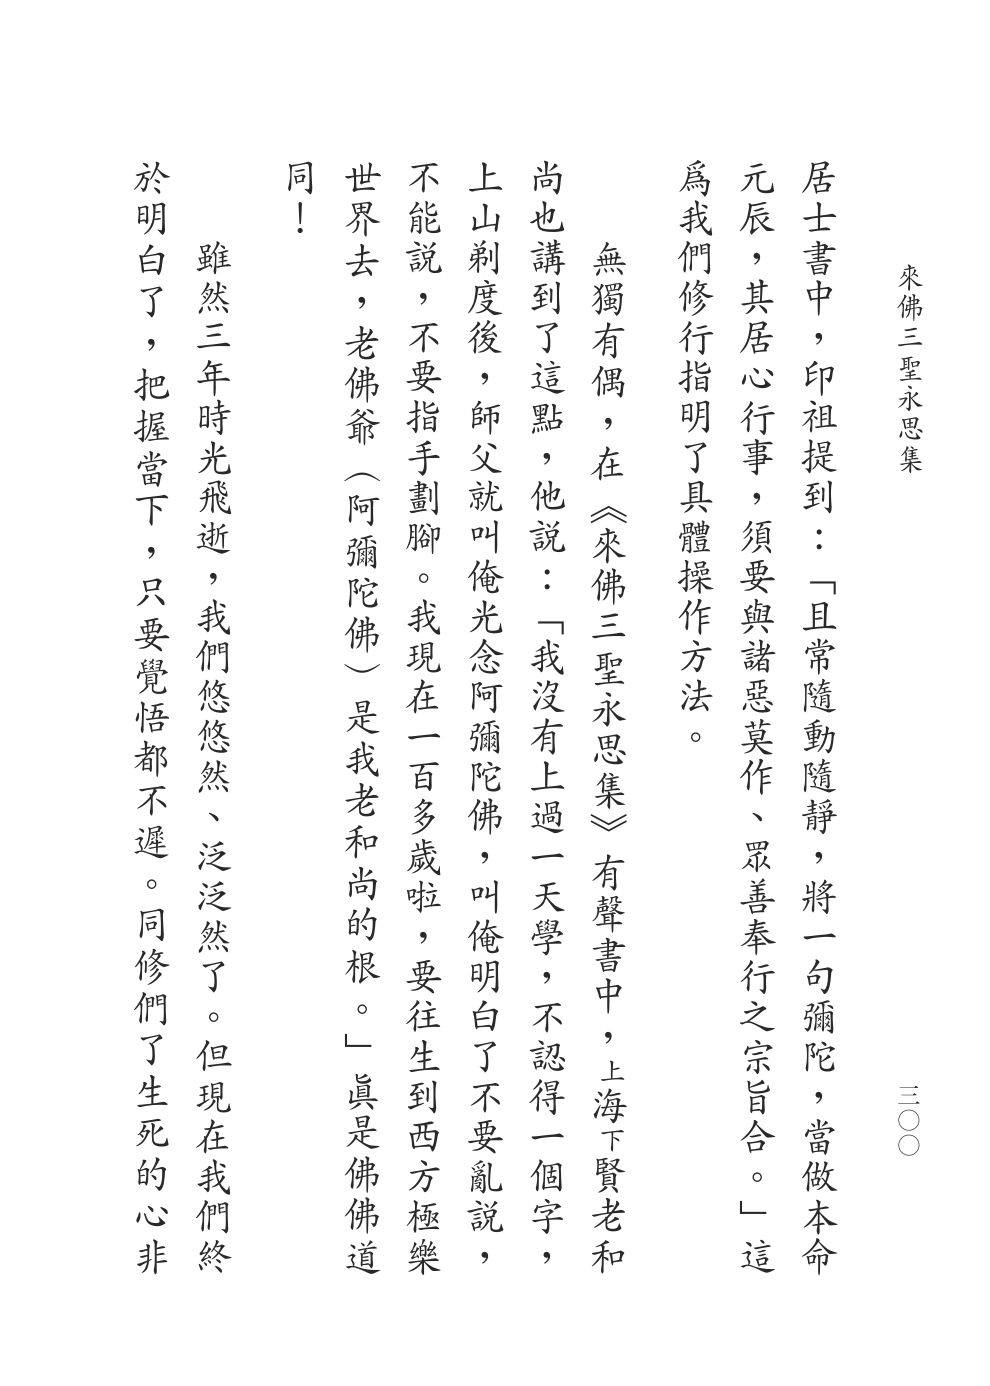 來佛三聖永思集
三〇〇
居士書中，印祖提到：「且常隨動隨靜，將一句彌陀，當做本命
元辰，其居心行事，須要與諸惡莫作、眾善奉行之宗旨合。」這
爲我們修行指明了具體操作方法。
無獨有偶，在《來佛三聖永思集》有聲書中，上海下賢老和
尚也講到了這點，他説：「我沒有上過一天學，不認得一個字，
上山剃度後，師父就叫俺光念阿彌陀佛，叫俺明白了不要亂説，
不能説，不要指手劃腳。我現在一百多歲啦，要往生到西方極樂
世界去，老佛爺（阿彌陀佛）是我老和尚的根。」眞是佛佛道
同！
雖然三年時光飛逝，我們悠悠然、泛泛然了。但現在我們終
於明白了，把握當下，只要覺悟都不遲。同修們了生死的心非